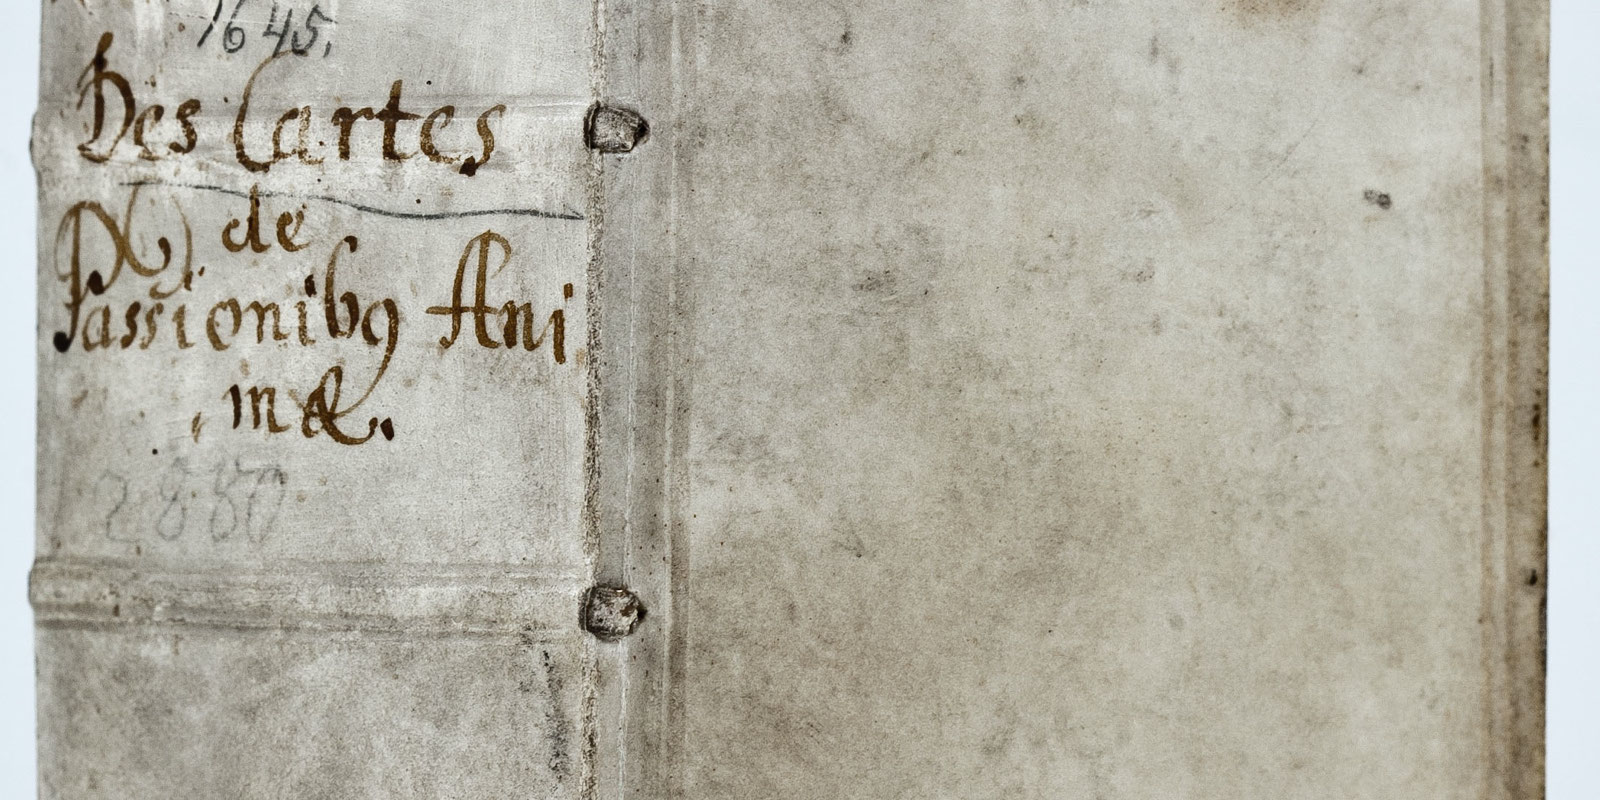 1645.
Des Cartes
de
Passionibꝰ Ani
mæ.
2880